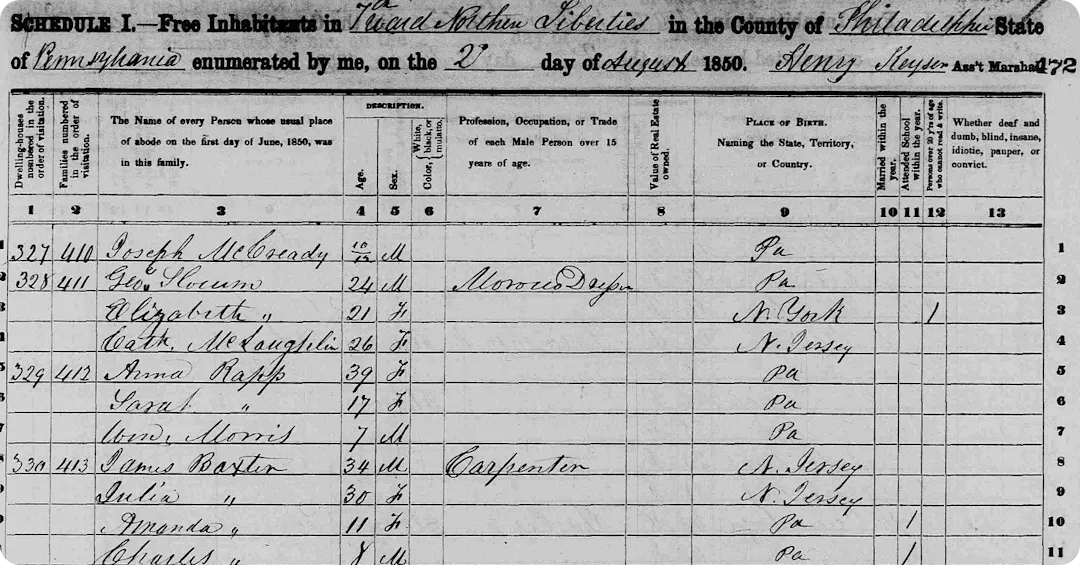 SCHEDULE I.—Free Inhabitants in 7th Ward Northern Liberties in the County of Philadelphia State
of Pennsylvania enumerated by me, on the 2d day of August 1850. Henry Keyser Ass't Marshal 472
Dwelling-houses numbered in the order of visitation.
Families numbered in the order of visitation.
The Name of every Person whose usual place of abode on the first day of June, 1850, was in this family.
DESCRIPTION.
Age.
Sex.
Color, { White, black, or mulatto.
Profession, Occupation, or Trade of each Male Person over 15 years of age.
Value of Real Estate owned.
PLACE OF BIRTH. Naming the State, Territory, or Country.
Married within the year.
Attended School within the year.
Persons over 20 y'rs of age who cannot read & write.
Whether deaf and dumb, blind, insane, idiotic, pauper, or convict.
1 2 3 4 5 6 7 8 9 10 11 12 13
1 327 410 Joseph McCready 10/12 M Pa 1
2 328 411 Geo. Slocum 24 M Morocco Dresser Pa 2
3 Elizabeth " 21 F N. York 1 3
4 Cath. McLaughlin 26 F N. Jersey 4
5 329 412 Anna Rapp 39 F Pa 5
6 Sarah " 17 F Pa 6
7 Wm. Morris 7 M Pa 7
8 330 413 James Baxter 34 M Carpenter N. Jersey 8
9 Julia " 30 F N. Jersey 9
Amanda " 11 F Pa 1 10
Charles " 8 M Pa 1 11